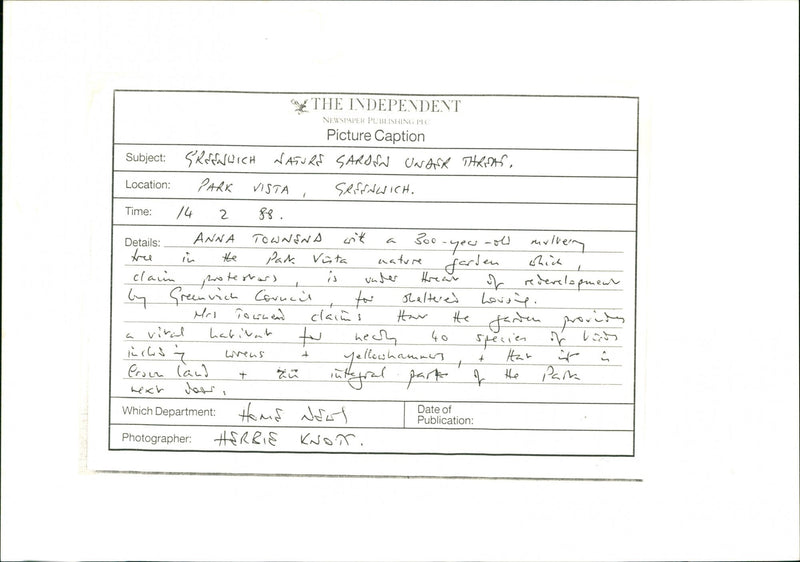 THE INDEPENDENT
NEWSPAPER PUBLISHING PLC
Picture Caption
Subject: GREENWICH NATURE GARDEN UNDER THREAT.
Location: PARK VISTA, GREENWICH.
Time: 14 2 88.
Details: ANNA TOWNEND with a 300-year-old mulberry
tree in the Park Vista nature garden which,
claim protesters, is under threat of redevelopment
by Greenwich Council, for sheltered housing.
Mrs Townend claims that the garden provides
a vital habitat for nearly 40 species of birds
including wrens + yellowhammers, + that it is
Crown land + an integral part of the Park
next door.
Which Department: HOME NEWS
Date of
Publication:
Photographer: HERBIE KNOTT.